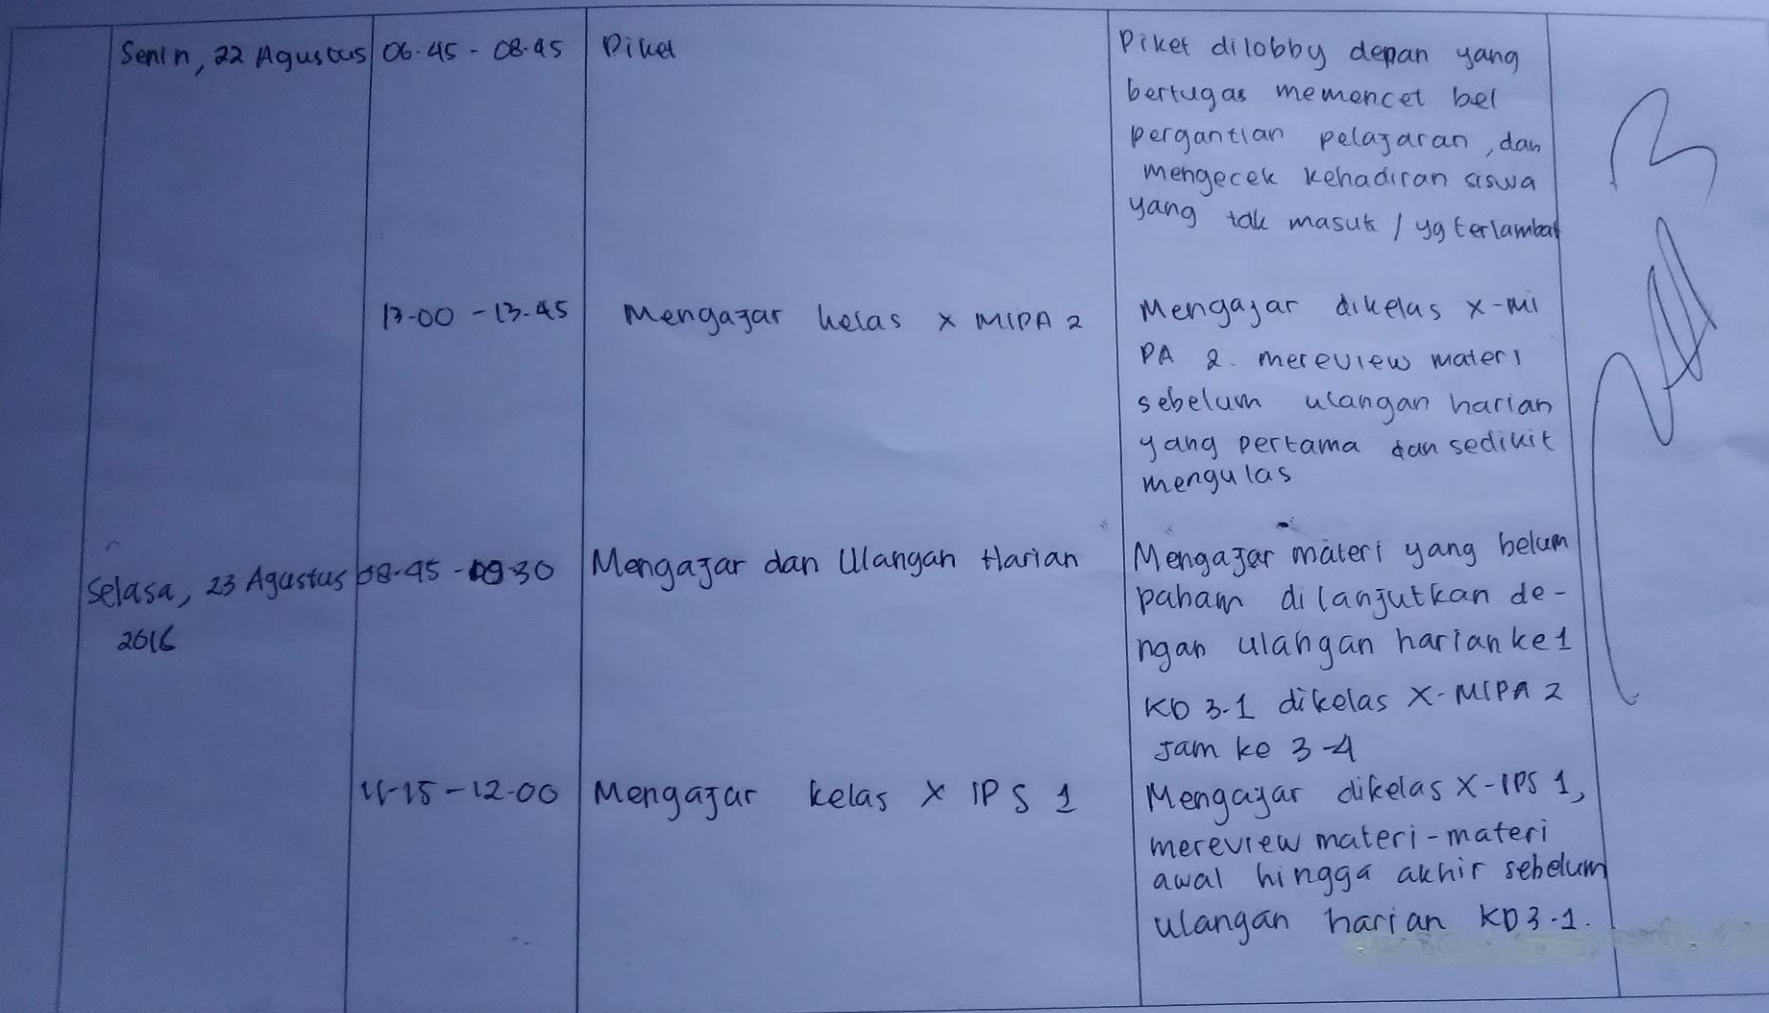 Senin, 22 Agustus 06.45 - 08.45 Piket Piket dilobby depan yang
bertugas memencet bel
pergantian pelajaran, dan
mengecek kehadiran siswa
yang tak masuk / yg terlambat
13.00 - 13.45 Mengajar kelas X MIPA 2 Mengajar dikelas X-MI
PA 2. mereview materi
sebelum ulangan harian
yang pertama dan sedikit
mengulas
Selasa, 23 Agustus 08.45 - 09.30 Mengajar dan Ulangan Harian Mengajar materi yang belum
2016 paham dilanjutkan de-
ngan ulangan harian ke 1
KD 3.1 dikelas X-MIPA 2
Jam ke 3-4
11.15 - 12.00 Mengajar kelas X IPS 1 Mengajar dikelas X-IPS 1,
mereview materi-materi
awal hingga akhir sebelum
ulangan harian KD 3.1.